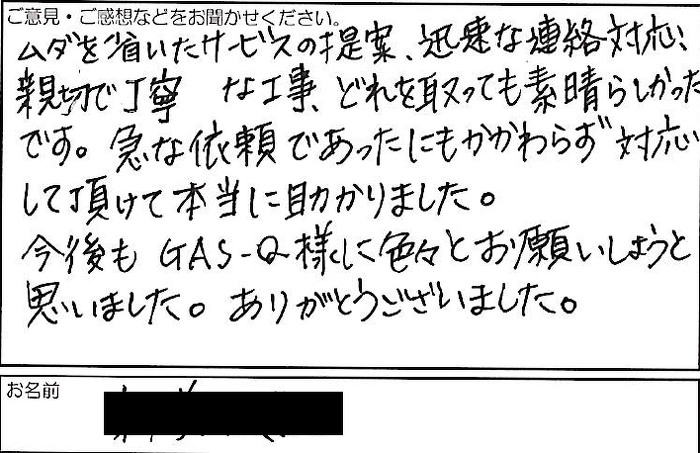 ご意見・ご感想などをお聞かせください。
ムダを省いたサービスの提案、迅速な連絡対応、
親切で丁寧 な工事、どれを取っても素晴らしかった
です。急な依頼であったにもかかわらず対応
して頂けて本当に助かりました。
今後もGAS-Q様に色々とお願いしようと
思いました。ありがとうございました。
お名前